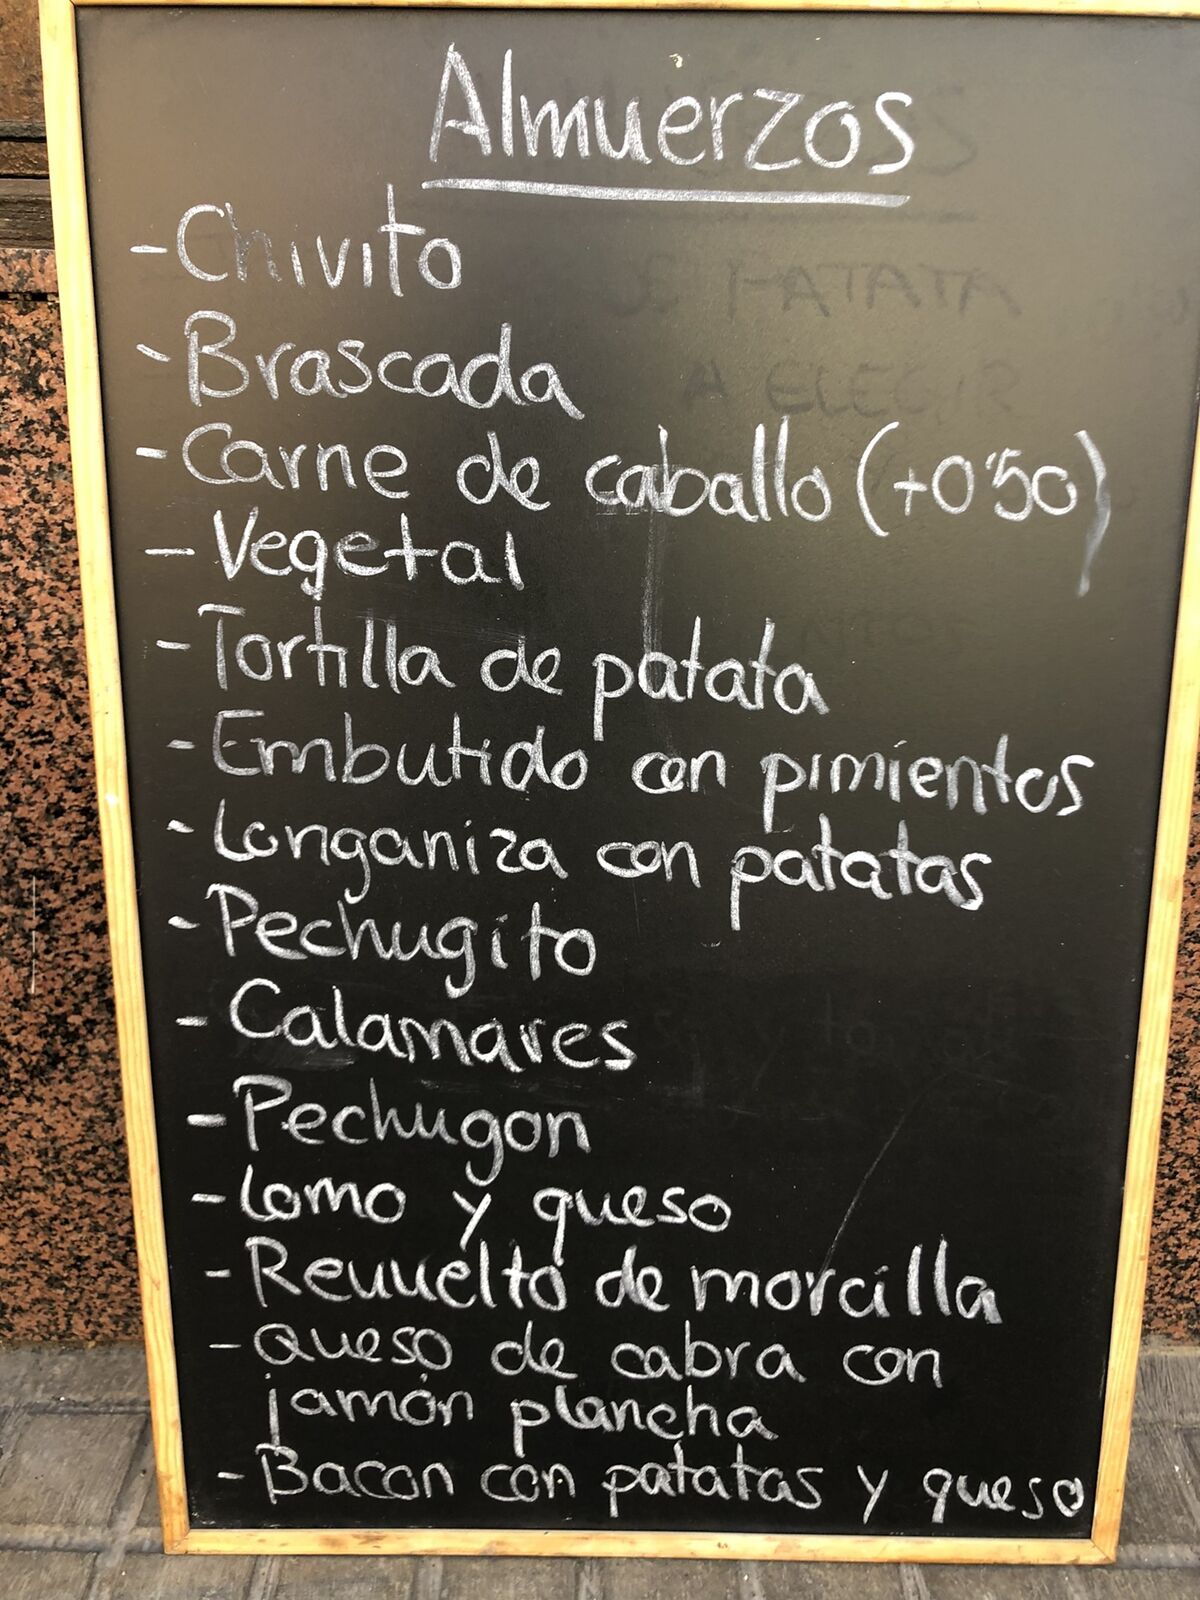 Almuerzos
- Chivito
- Brascada
- Carne de caballo (+0'50)
- Vegetal
- Tortilla de patata
- Embutido con pimientos
- Longaniza con patatas
- Pechugito
- Calamares
- Pechugon
- Lomo y queso
- Revuelto de morcilla
- Queso de cabra con
jamón plancha
- Bacon con patatas y queso
DE PATATA
A ELEGIR